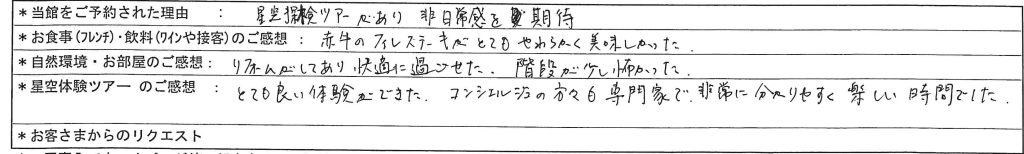 ＊当館をご予約された理由　：　星空探検ツアーがあり 非日常感を期待
＊お食事（フレンチ）・飲料（ワインや接客）のご感想：　赤牛のフィレステーキがとてもやわらかく美味しかった．
＊自然環境・お部屋のご感想：　リフォームがしてあり快適に過ごせた．階段が少し怖かった．
＊星空体験ツアー のご感想　：　とても良い体験ができた．コンシェルジュの方々も専門家で、非常に分かりやすく楽しい時間でした．
＊お客さまからのリクエスト